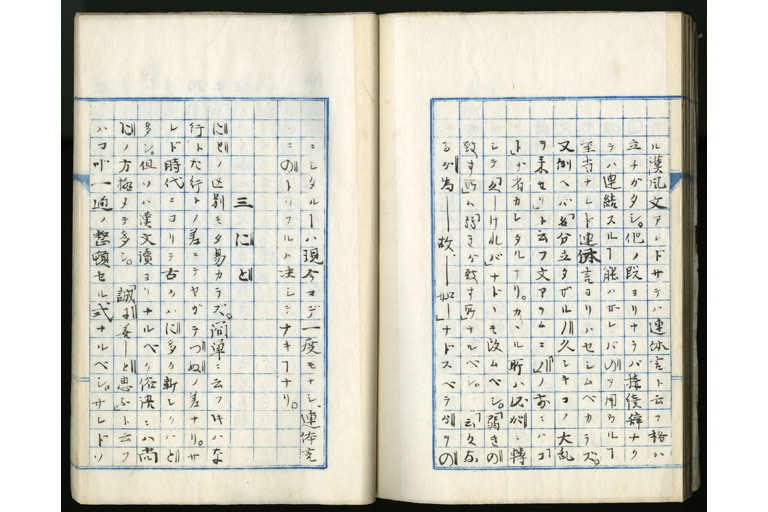 ル漢風文アレドサテハ連体言ト云フ格ハ
立チガタシ。他ノ段ヨリナラバ接僂辞ナク
テハ連結スルヿ能ハザレバのヲ用ウルヿ
至当ナレド連体言ヨリハセシムベカラズ。
又例ヘバ名分立タザル久シキコノ大乱
ヲ来セリト云フ文アラムニノ前ニハコ
トガ省カレタルナリ。カヽル所ハ又ガニ轉
シテ「ーけれ」バナドヽモ改ムベシ。「弱きの
致す所」ハ「弱きが致す所」ナルベシ。「云々な
るが為ー故、ー如」ナドスベテガヲの
ニシタルーハ現今マデ一度モナシ、連体言
ニのトソフルハ決シテナキヿナリ。
三 にと
にとノ区別モ亦易カラズ。簡単ニ云フ時ハな
行トた行トノ差ニテヤガテつぬノ差ナリ。サ
レド時代ニヨリテ古クハに多ク新シクハと
多シ。但ソハ漢文讀ヨリナルベク俗語ニハ尚
にノ方極メテ多シ。「誠に善ーと思ふ」ト云フ
ハコレ一通ノ整頓セル式ナルベシ。サレドソ